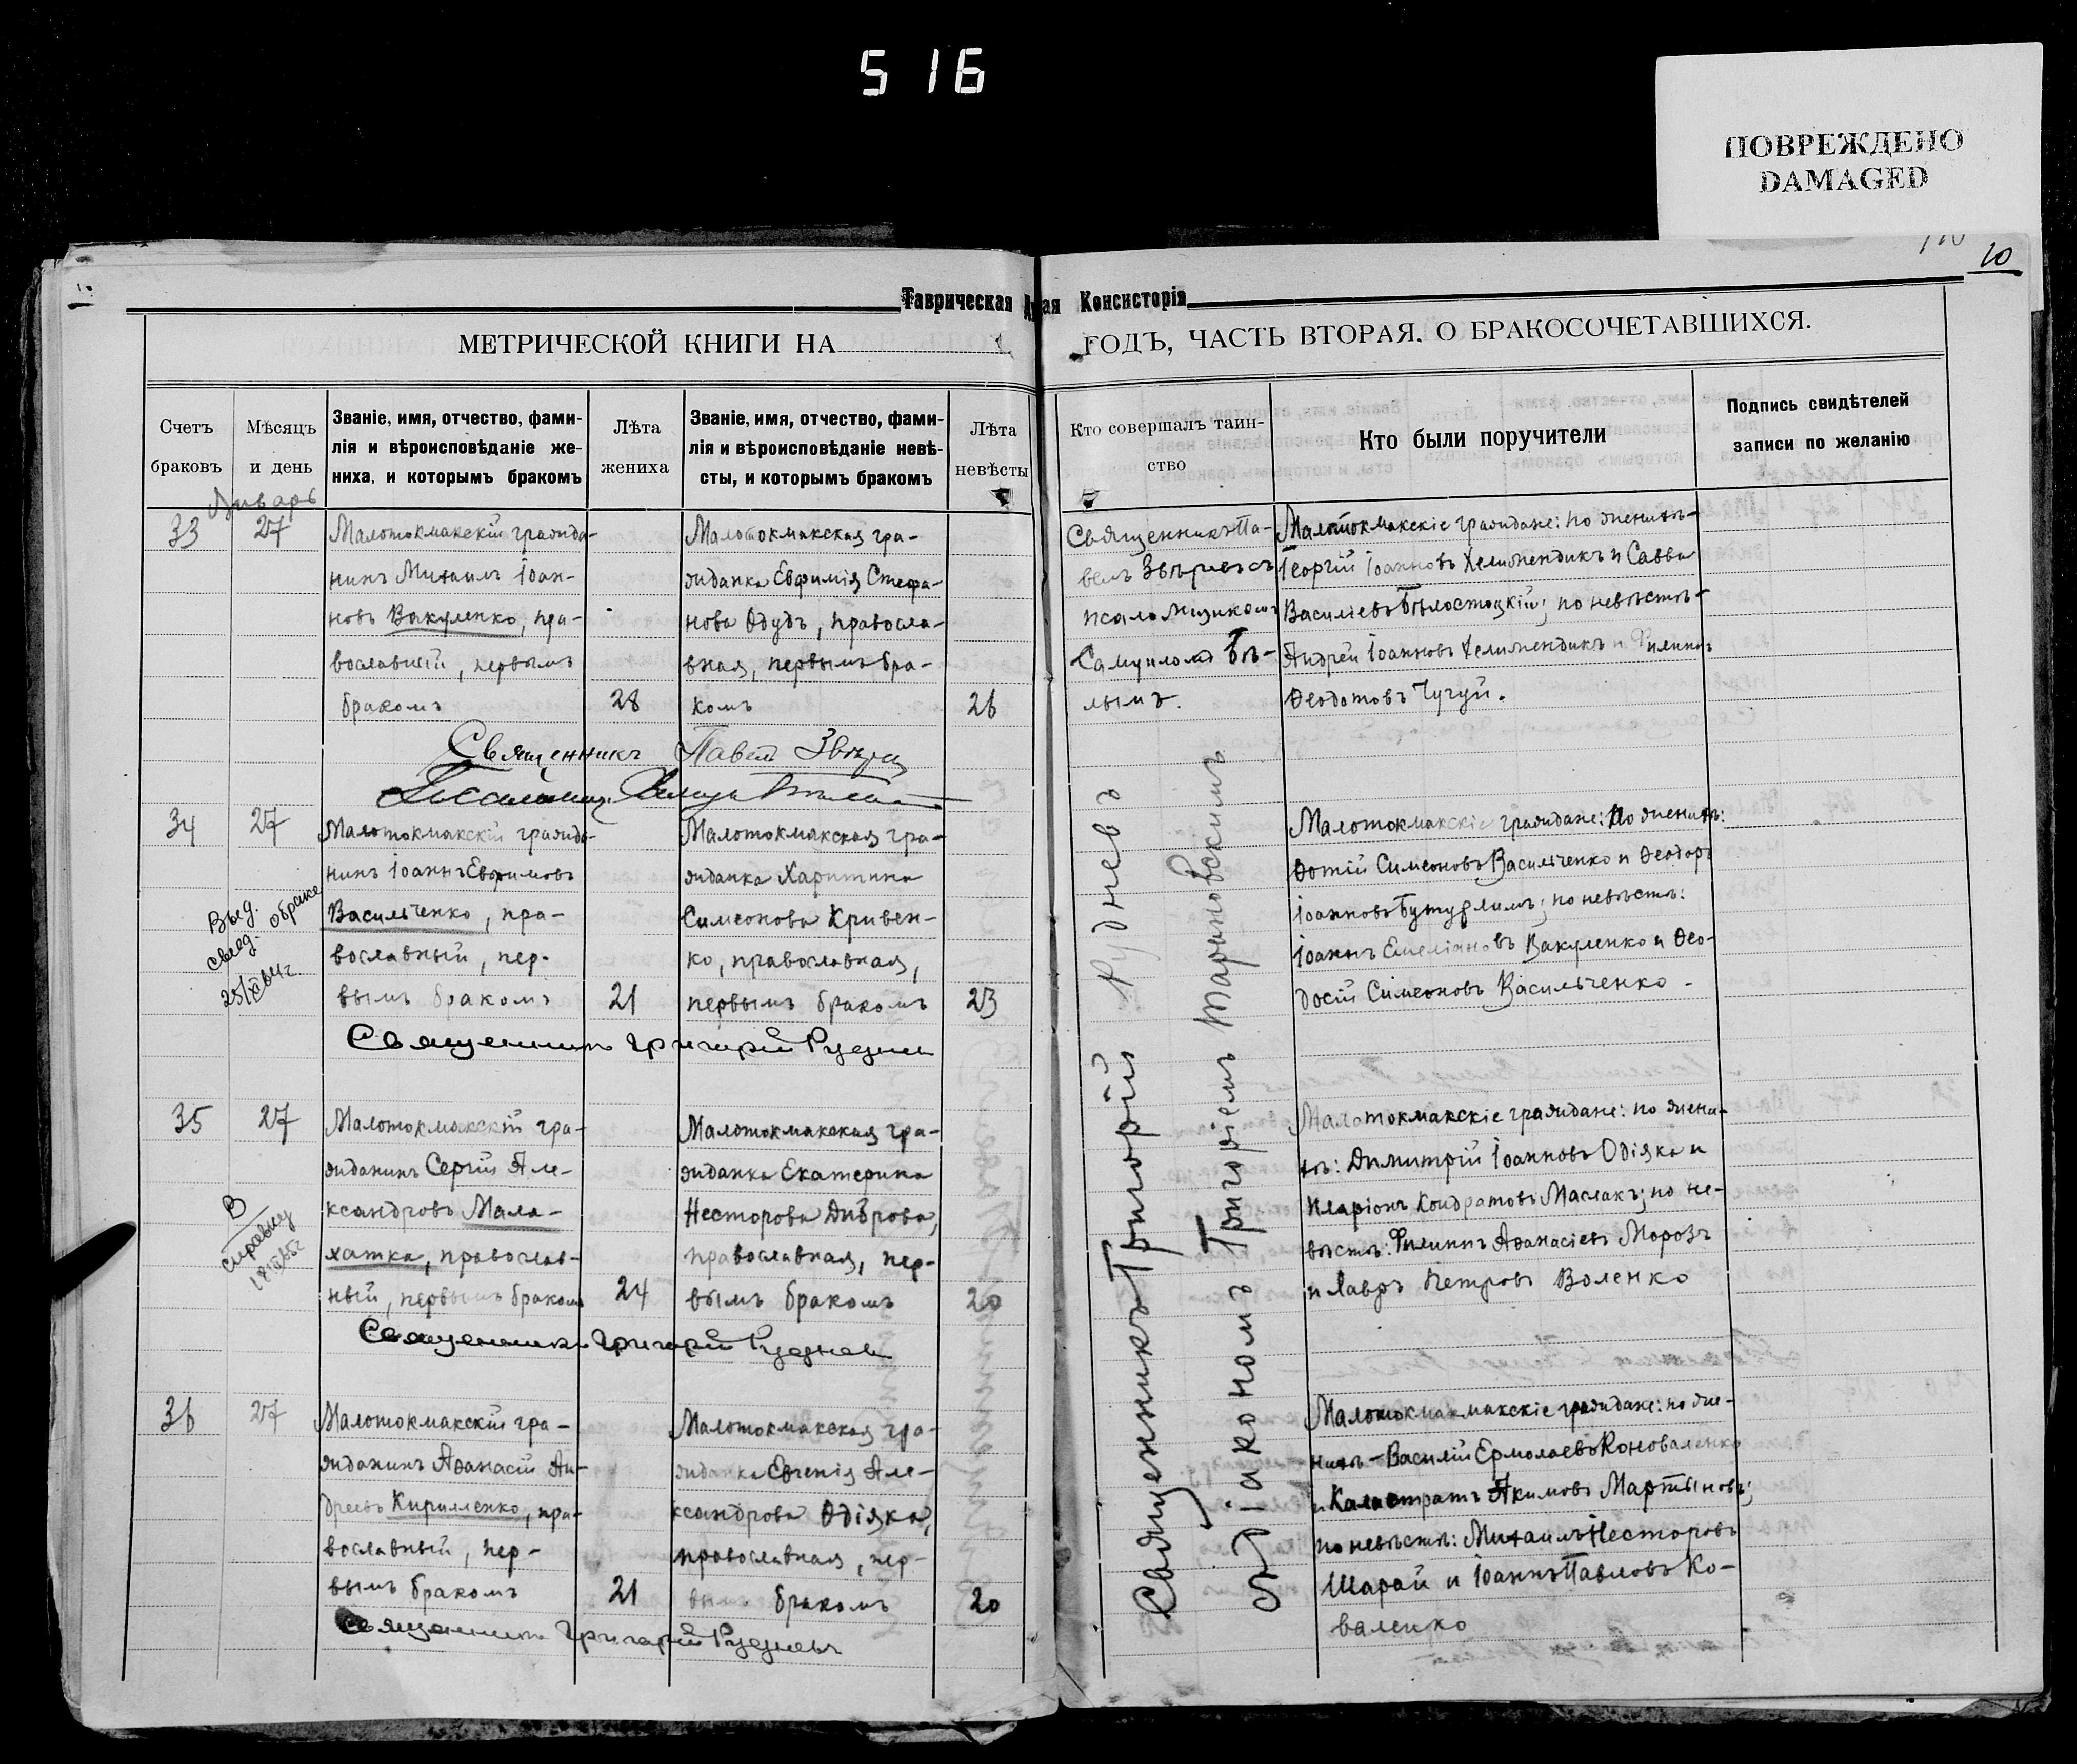 516
ПОВРЕЖДЕНО
DAMAGED
10
Таврическая
ая Консисторія
МЕТРИЧЕСКОЙ КНИГИ НА
ГОДЪ, ЧАСТЬ ВТОРАЯ. О БРАКОСОЧЕТАВШИХСЯ.
Счетъ
браковъ
Мѣсяцъ
и день
Званіе, имя, отчество, фами-
лія и вѣроисповѣданіе же-
ниха, и которымъ бракомъ
Лѣта
жениха
Званіе, имя, отчество, фами-
лія и вѣроисповѣданіе невѣ-
сты, и которымъ бракомъ
Лѣта
невѣсты
Кто совершалъ таин-
ство
Кто были поручители
Подпись свидѣтелей
записи по желанію
Январь
33
27
Малотокмакскій гражда-
нинъ Михаилъ Іоан-
новъ Вакуленко, пра-
вославный, первымъ
бракомъ
28
Малотокмакская гра-
жданка Евфимія Стефа-
нова Одудъ, правосла-
вная, первымъ бра-
комъ
26
Священникъ Па-
велъ Звѣревъ съ
псаломщикомъ
Самуиломъ Бѣ-
лымъ.
Малотокмакскіе граждане: по женихѣ-
Георгій Іоанновъ Хелимендикъ и Савва
Василіевъ Бѣлостоцкій; по невѣстѣ-
Андрей Іоанновъ Хелимендикъ и Филиппъ
Ѳеодотовъ Чугуй.
Священникъ Павелъ Звѣрев
34
27
Малотокмакскій гражда-
нинъ Іоаннъ Евфимовъ
Васильченко, пра-
вославный, пер-
вымъ бракомъ
21
Малотокмакская гра-
жданка Харитина
Симеонова Кривен-
ко, православная,
первымъ бракомъ
23
Малотокмакскіе граждане: по женихѣ:
Ѳотій Симеоновъ Васильченко и Ѳеодоръ
Іоанновъ Бутурлимъ; по невѣстѣ:
Іоаннъ Емеліановъ Вакуленко и Ѳео-
досій Симеоновъ Васильченко -
Выд.
свед. о браке
Священникъ Григорій Руднев
35
27
Малотокмакскій гра-
жданинъ Сергій Але-
ксандровъ Мала-
хатка, православ-
ный, первымъ бракомъ
24
Малотокмакская гра-
жданка Екатерина
Несторова Диброва,
православная, пер-
вымъ бракомъ
20
Малотокмакскіе граждане: по жени-
хѣ: Димитрій Іоанновъ Одіяка и
Иларіонъ Кондратовъ Маслакъ; по не-
вѣстѣ: Филиппъ Аѳанасіевъ Морозъ
и Лавръ Петровъ Воленко
В
справку
Священникъ Григорій Руднев
36
27
Малотокмакскій гра-
жданинъ Аѳанасій Ан-
дреевъ Кириленко, пра-
вославный, пер-
вымъ бракомъ
21
Малотокмакская гра-
жданка Евгенія Але-
ксандрова Одіяка,
православная, пер-
вымъ бракомъ
20
Малотокмакмакскіе граждане: по же-
нихѣ - Василій Ермолаевъ Коноваленко
и Калистратъ Якимовъ Мартыновъ;
по невѣстѣ: Михаилъ Несторовъ
Шарай и Іоаннъ Павловъ Ко-
валенко
Священникъ Григорій Рудневъ
Священникъ Григорій Рудневъ
съ діакономъ Григоріемъ Тарановскимъ